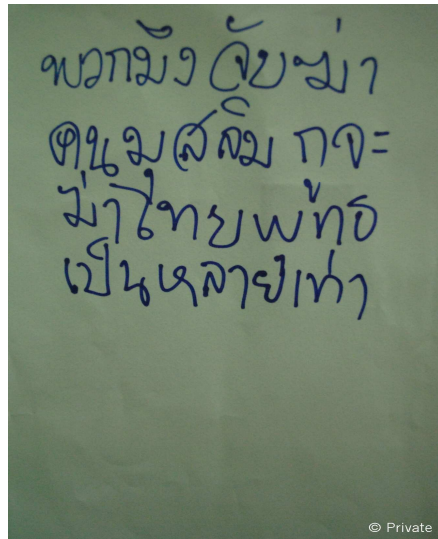 พวกมึง จับฆ่า
คนมุสลิม กูจะ
ฆ่าไทยพุทธ
เป็นหลายเท่า
© Private